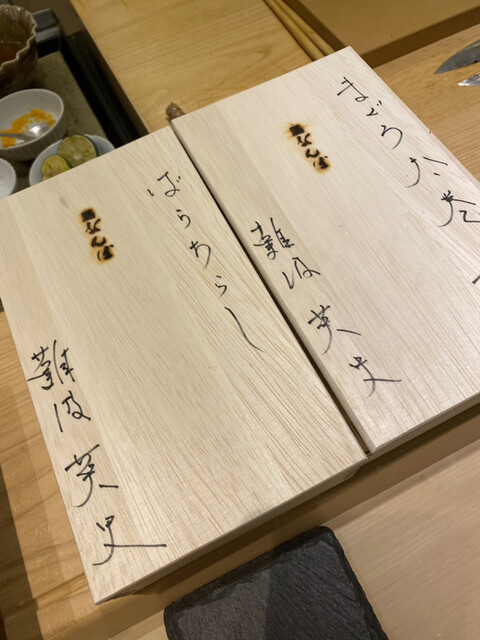 ばらちらし
鮨なんば
難波英史
まぐろ太巻
鮨なんば
難波英史